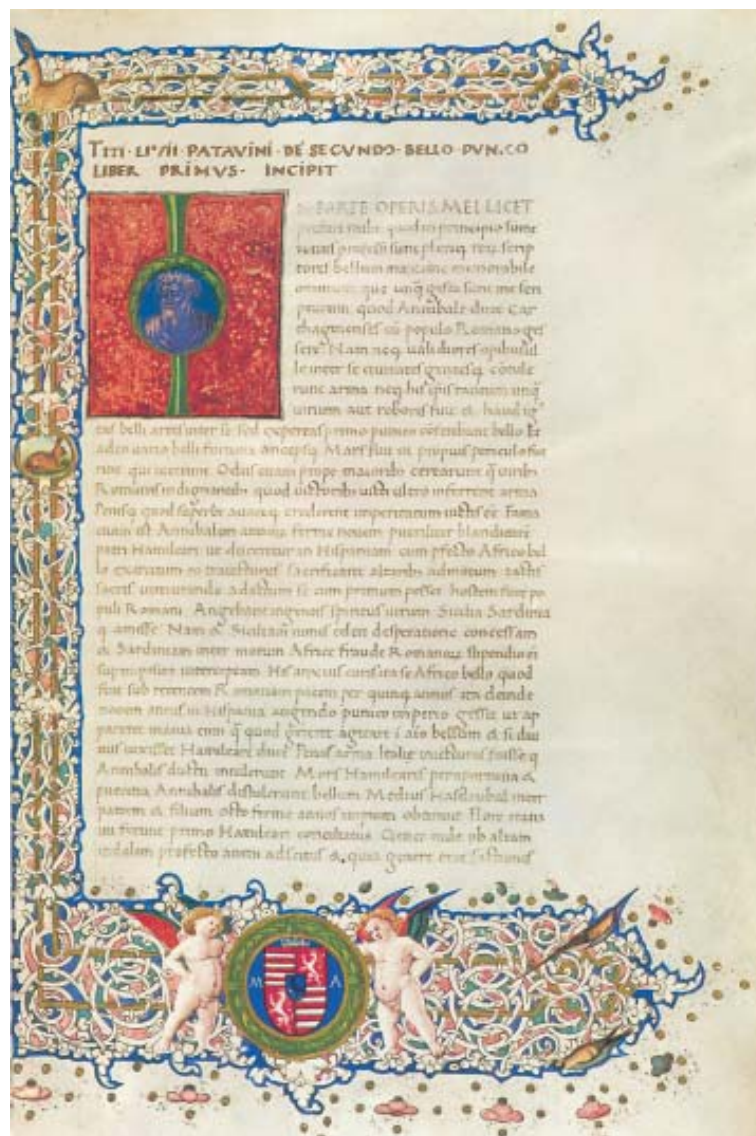 TITI · LIVII · PATAVINI · DE SECVNDO · BELLO · PVN.CO
LIBER PRIMVS · INCIPIT
PARTE OPERIS MEI LICET
quod in principio sume
scrip
tores bellum maxime memorabile
omnium que unq̃ gesta sint me scri
pturum quod Annibale duce Car
thaginenses cũ populo Romano ges
sere Nam neq ualidiores opibus ul
le inter se ciuitates gentesq contule
runt arma neq his ipsis tantum unq̃
uirium aut roboris fuit & haud ig
belli artes inter se sed expertas primo punico bello Et
adeo uaria belli fortuna ancepsq Mars fuit ut propius periculo fue
rint qui uicerunt Odiis etiam prope maioribus certarunt q̃ uiribus
Romanis indignantibus quod uictoribus uicti ultro inferrent arma
Penis quod superbe auareq crederent imperitatum uictis eẽ Fama
etiam est Annibalem annorum ferme nouem pueriliter blandientem
patri Hamilcari ut duceretur in Hispaniam cum Africo bel
lo exercitum eo traiecturus sacrificaret altaribus admotum tactis
sacris iureiurando adactum se cum primum posset hostem fore po
puli Romani Angebant ingentis spiritus uirum Sicilia Sardinia
q amisse Nam & Siciliam nimis celeri desperatione concessam
& Sardiniam inter motum Africe fraude Romanorum stipendio
interceptam His anxius curis ita se Africo bello quod
fuit sub recentem Romanam pacem per quinq annos ita deinde
nouem annis in Hispania augendo punico imperio gessit ut ap
pareret maius eum q̃ quod gereret agitare aĩo bellum & si diu
tius uixisset Hamilcare duce Penos arma Italie illaturos fuisse q
Annibalis ductu intulerunt Mors Hamilcaris peropportuna &
pueritia Annibalis distulerunt bellum Medius Hasdrubal inter
patrem & filium octo ferme annos imperium obtinuit Flore etatis
uti ferunt primo Hamilcari conciliatus Gener inde ob aliam
indolem profecto animi adscitus & quia gener erat factionis
M A